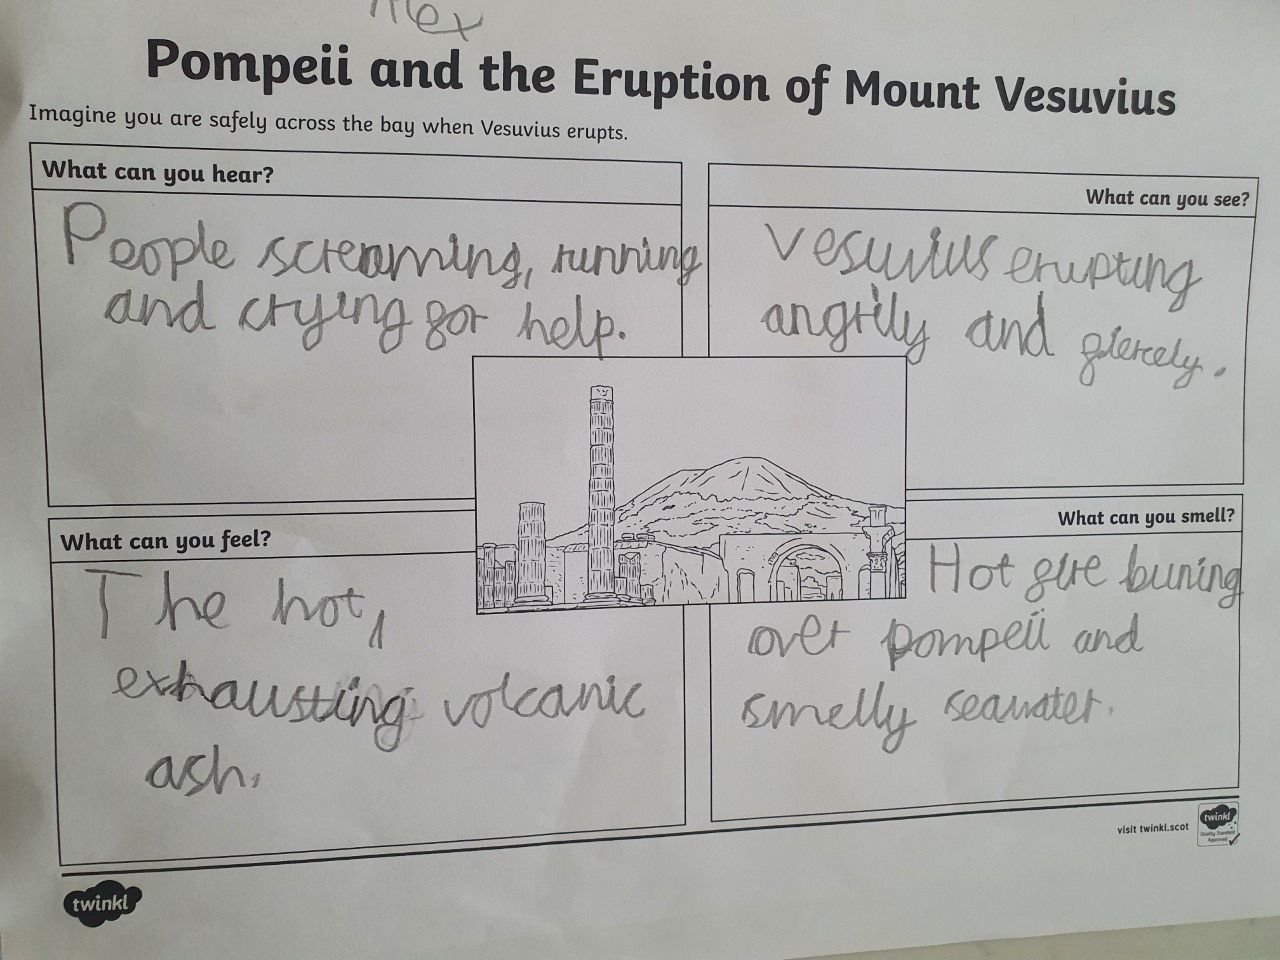 Alex
Pompeii and the Eruption of Mount Vesuvius
Imagine you are safely across the bay when Vesuvius erupts.
What can you hear?
People screaming, running
and crying for help.
What can you see?
Vesuvius erupting
angrily and fiercely.
What can you feel?
The hot,
exhausting volcanic
ash.
What can you smell?
Hot fire buning
over pompeii and
smelly seawater.
visit twinkl.scot
twinkl
Quality Standard
Approved
twinkl